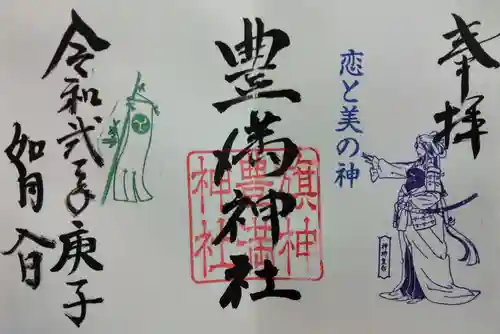 奉拝
恋と美の神
豊満神社
旗神
豊満
神社
令和弐年庚子
如月 八日